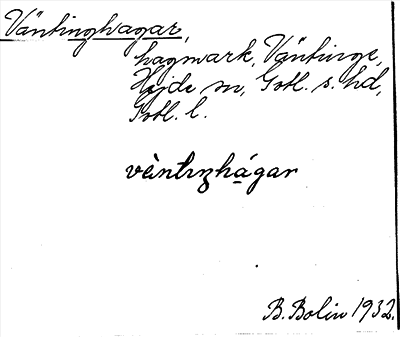 Väntinghagar,
hagmark, Väntinge,
Hejde sn, Gotl. s. hd,
Gotl. l.
vä̀ntıŋhágar
B. Bolin 1932.